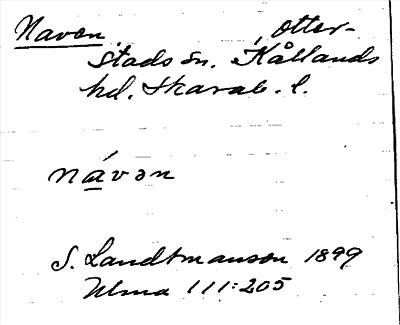 Naven, Otter-
stads sn. Kållands
hd. Skarab. l.
návən
S. Landtmanson 1899
Ulma 111:205